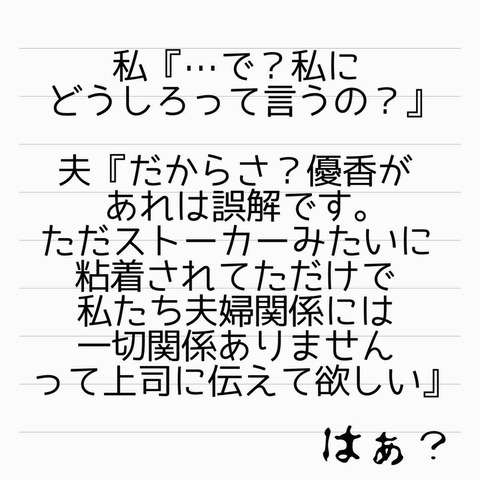 私『…で？私に
どうしろって言うの？』
夫『だからさ？優香が
あれは誤解です。
ただストーカーみたいに
粘着されてただけで
私たち夫婦関係には
一切関係ありません
って上司に伝えて欲しい』
はぁ？